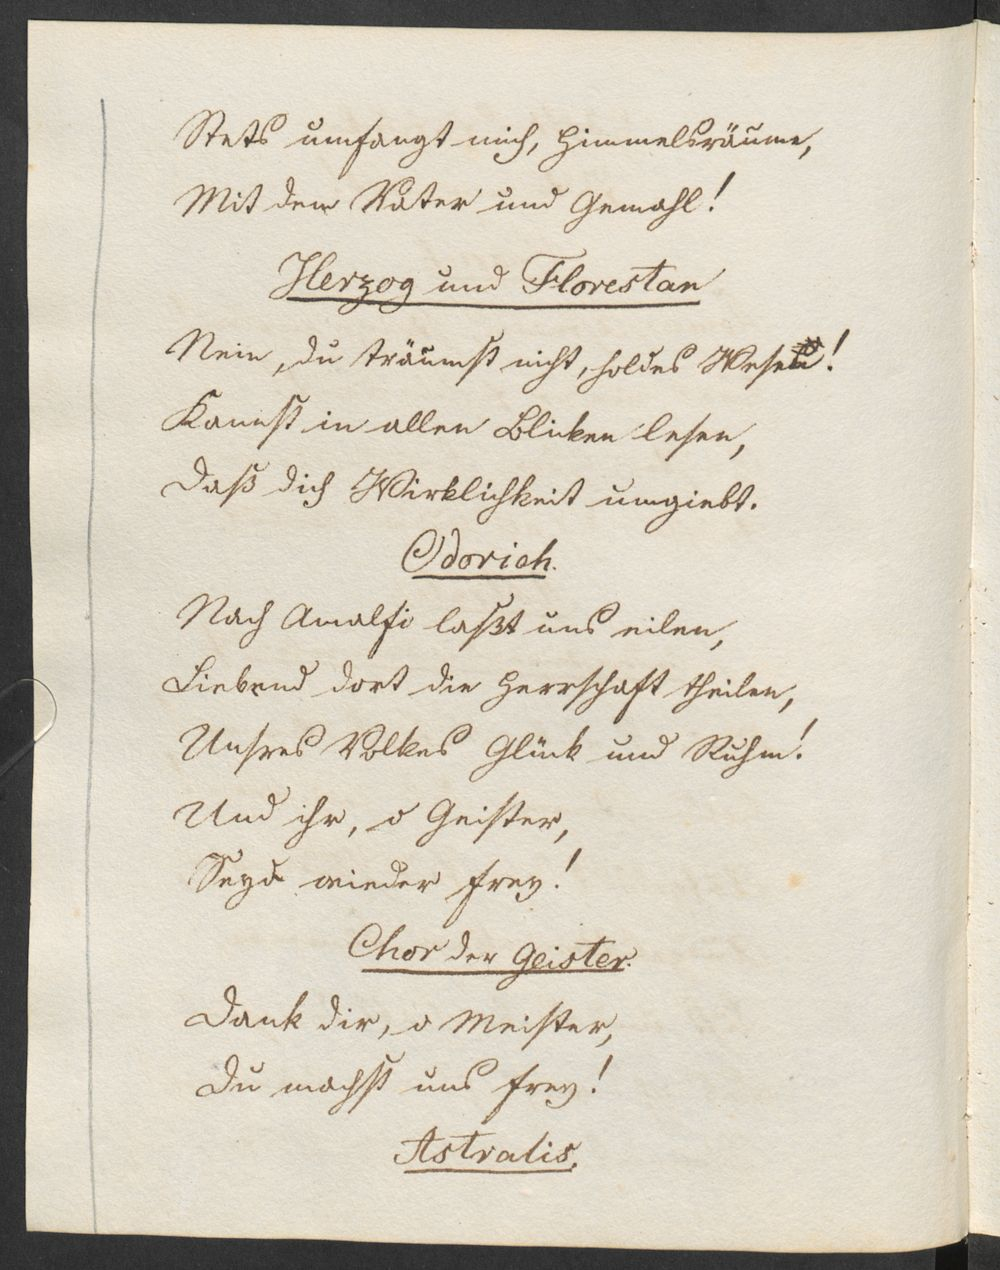 Stets umfangt mich, Himmelsräume,
Mit dem Vater und Gemahl!
Herzog und Florestan
Nein, du träumst nicht, holdes Wesen!
Kannst in allen Blicken lesen,
Daß dich Wirklichkeit umgiebt.
Odorich.
Nach Amalfi laßt uns eilen,
Liebend dort die Herrschaft theilen,
Unsres Volkes Glück und Ruhm!
Und ihr, o Geister,
Seyd wieder frey!
Chor der Geister.
Dank dir, o Meister,
Du machst uns frey!
Astralis.